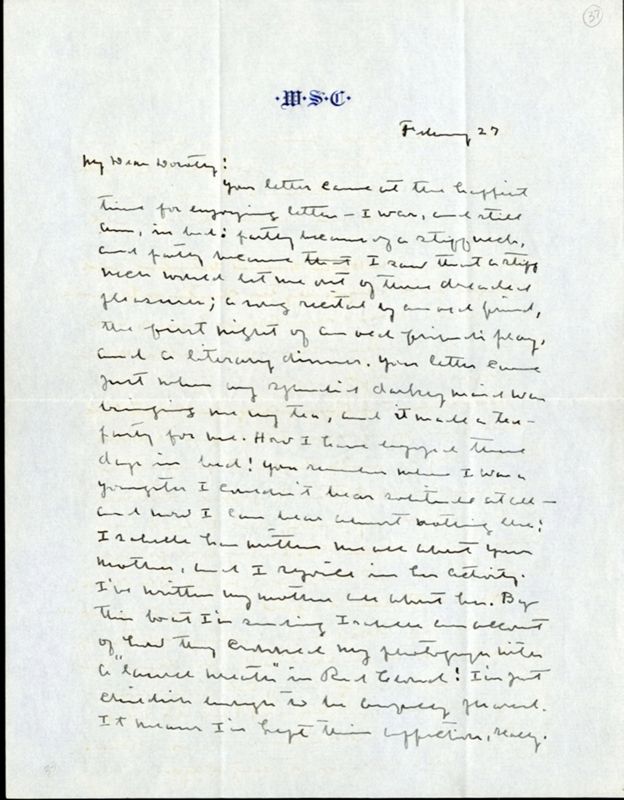 37
·W·S·C·
February 27
My Dear Dorothy:
Your letter came at the happiest
time for enjoying letters — I was, and still
am, in bed: partly because of a stiff neck,
and partly because that I saw that a stiff
neck would let me out of three dreaded
pleasures; a song recital by an old friend,
the first night of an old friend's play,
and a literary dinner. Your letter came
just when my splendid darkey maid was
bringing me my tea, and it made a tea-
party for me. How I have enjoyed these
days in bed! You remember when I was a
youngster I couldn't bear solitude at all —
and now I can bear almost nothing else!
Isabelle has written me all about your
mother, and I rejoice in her activity.
I've written my mother all about her. By
this boat I'm sending Isabelle an account
of how they crowned my photograph with
a "laurel wreath" in Red Cloud! I'm just
childish enough to be hugely pleased.
It means I've kept their affection, really.